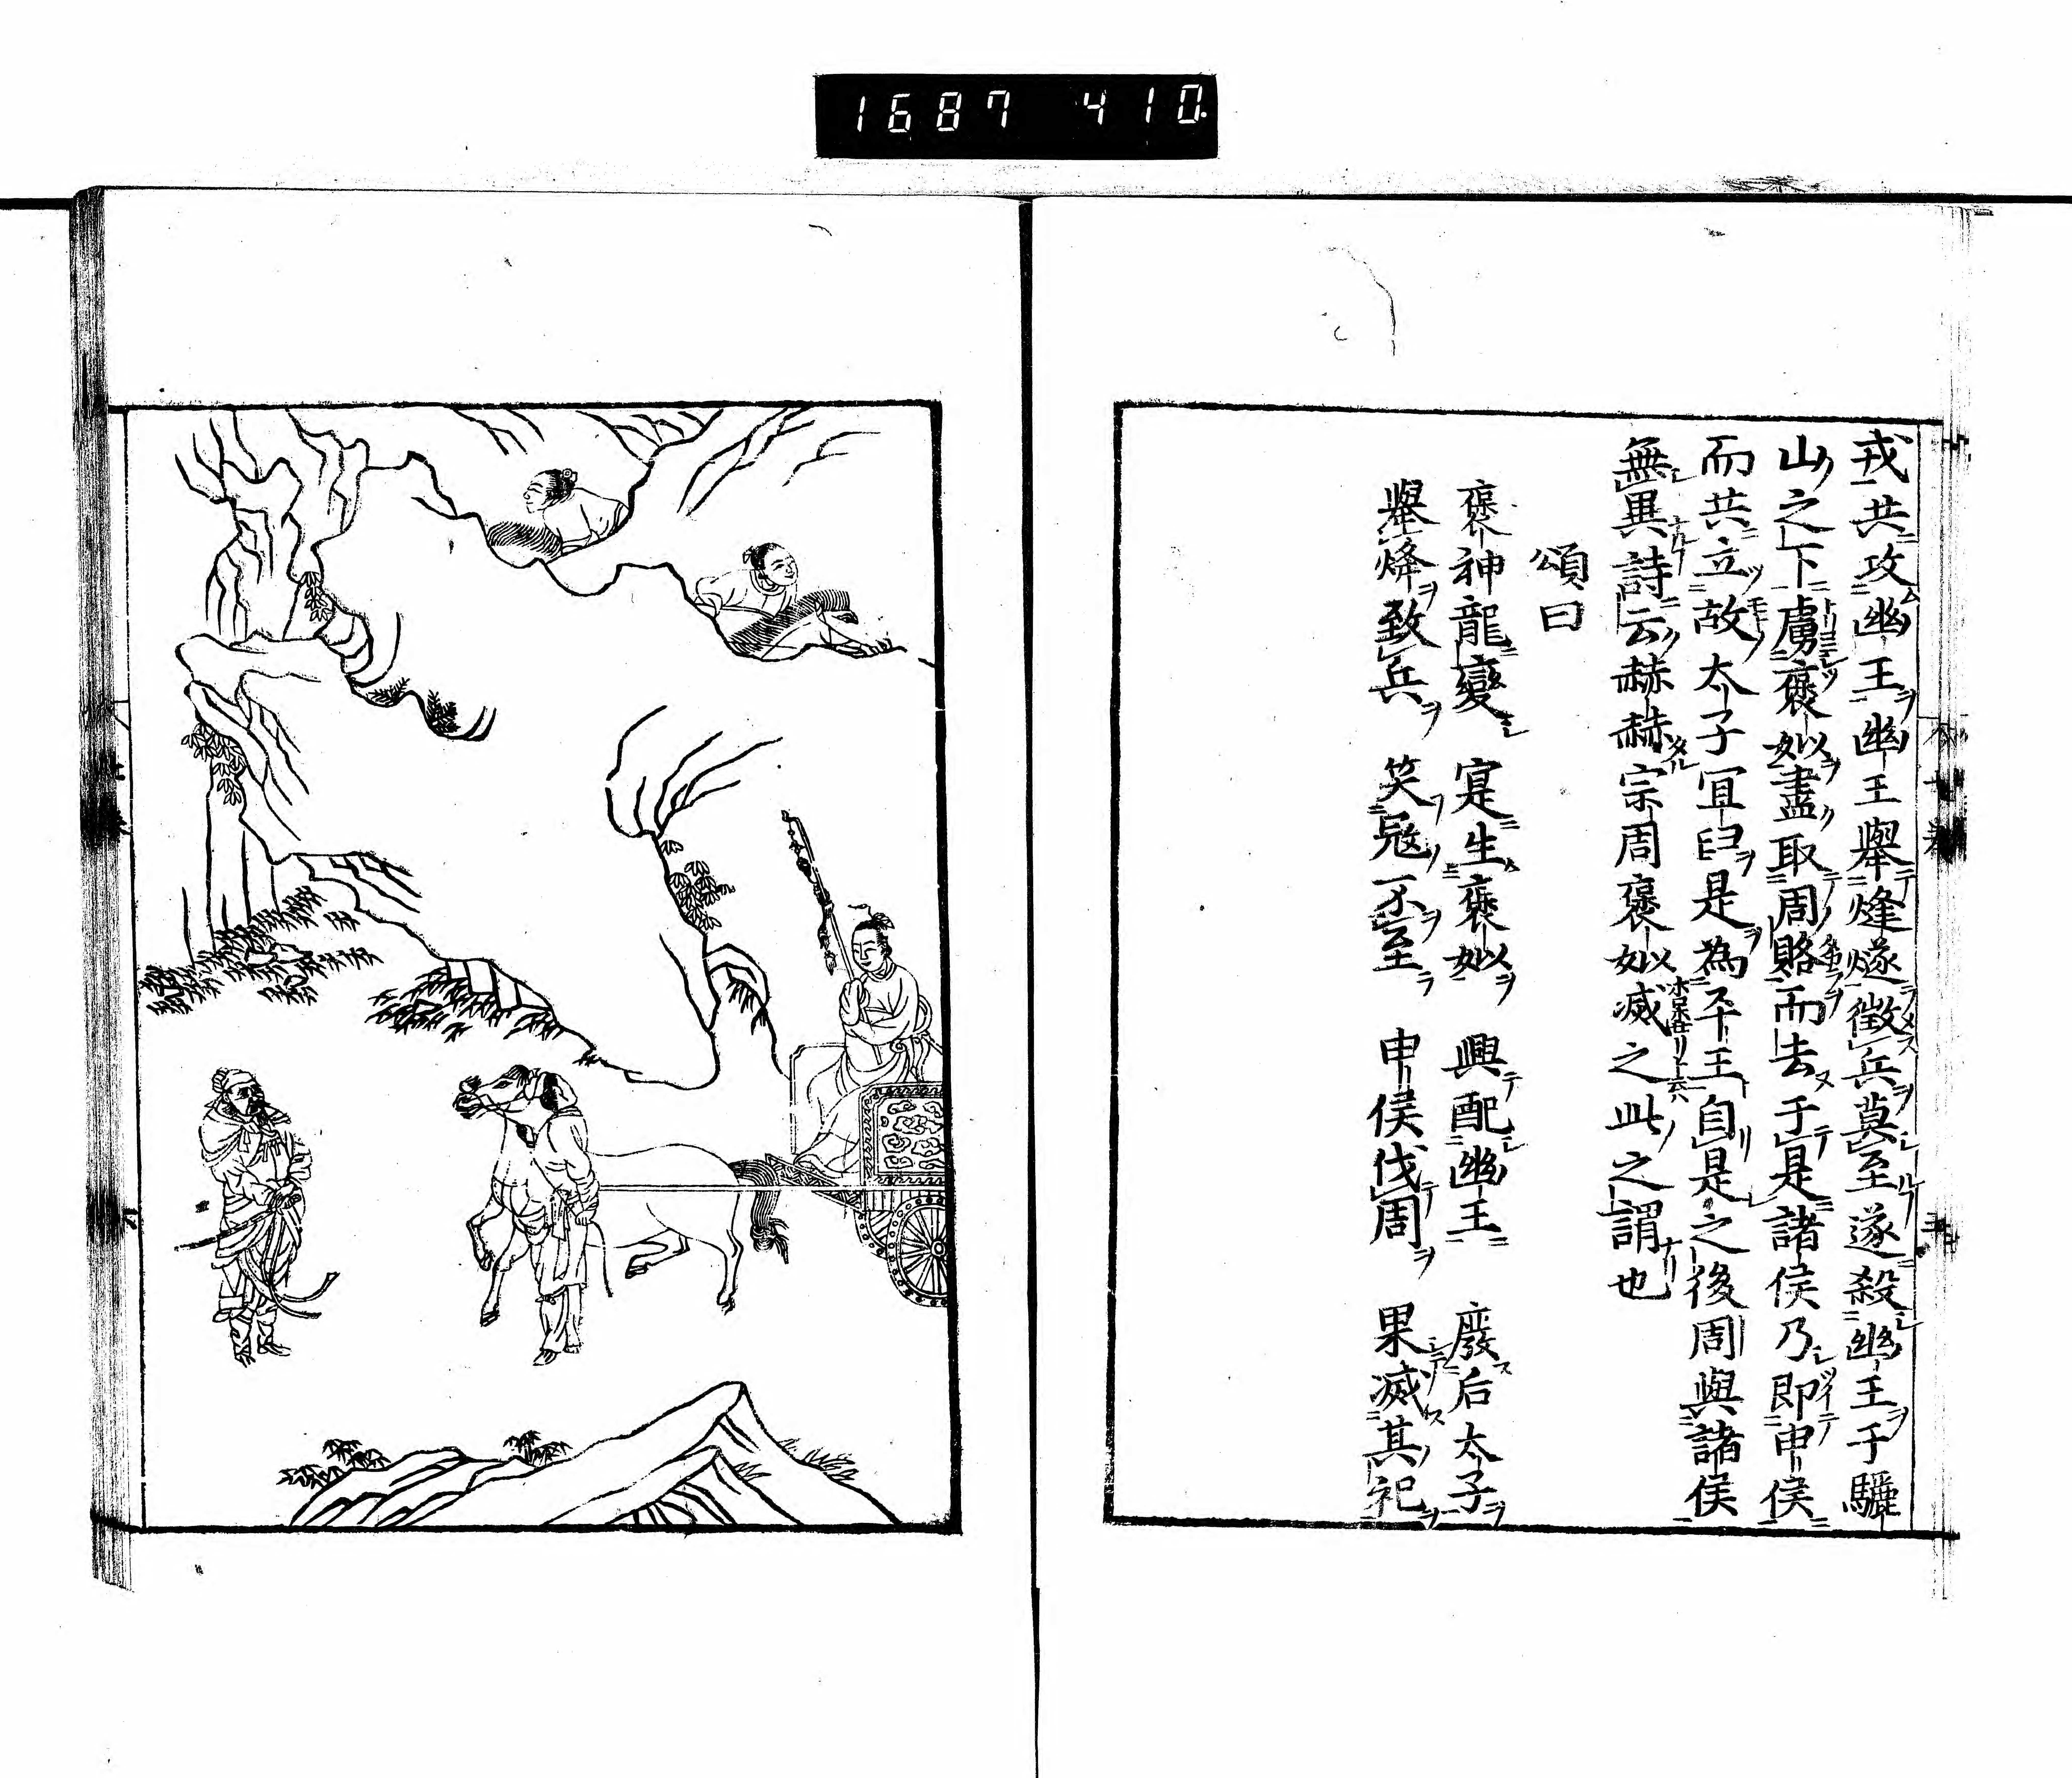 1687 410
戎共攻幽王幽王舉烽燧徵兵莫至遂殺幽王于驪
山之下虜褒姒盡取周賂而去于是諸侯乃即申侯
而共立故太子冝臼是為平王自是之後周與諸侯
無異詩云赫赫宗周褒姒滅之此之謂也
頌曰
褒神龍變 寔生褒姒 興配幽王 廢后太子
舉烽致兵 笑寇不至 申侯伐周 果滅其祀